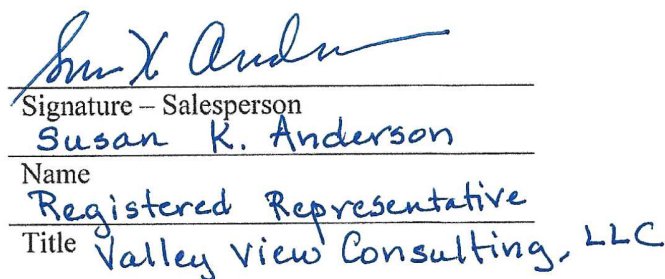 Susan K Anderson
Signature – Salesperson
Susan K. Anderson
Name
Registered Representative
Title Valley View Consulting, LLC